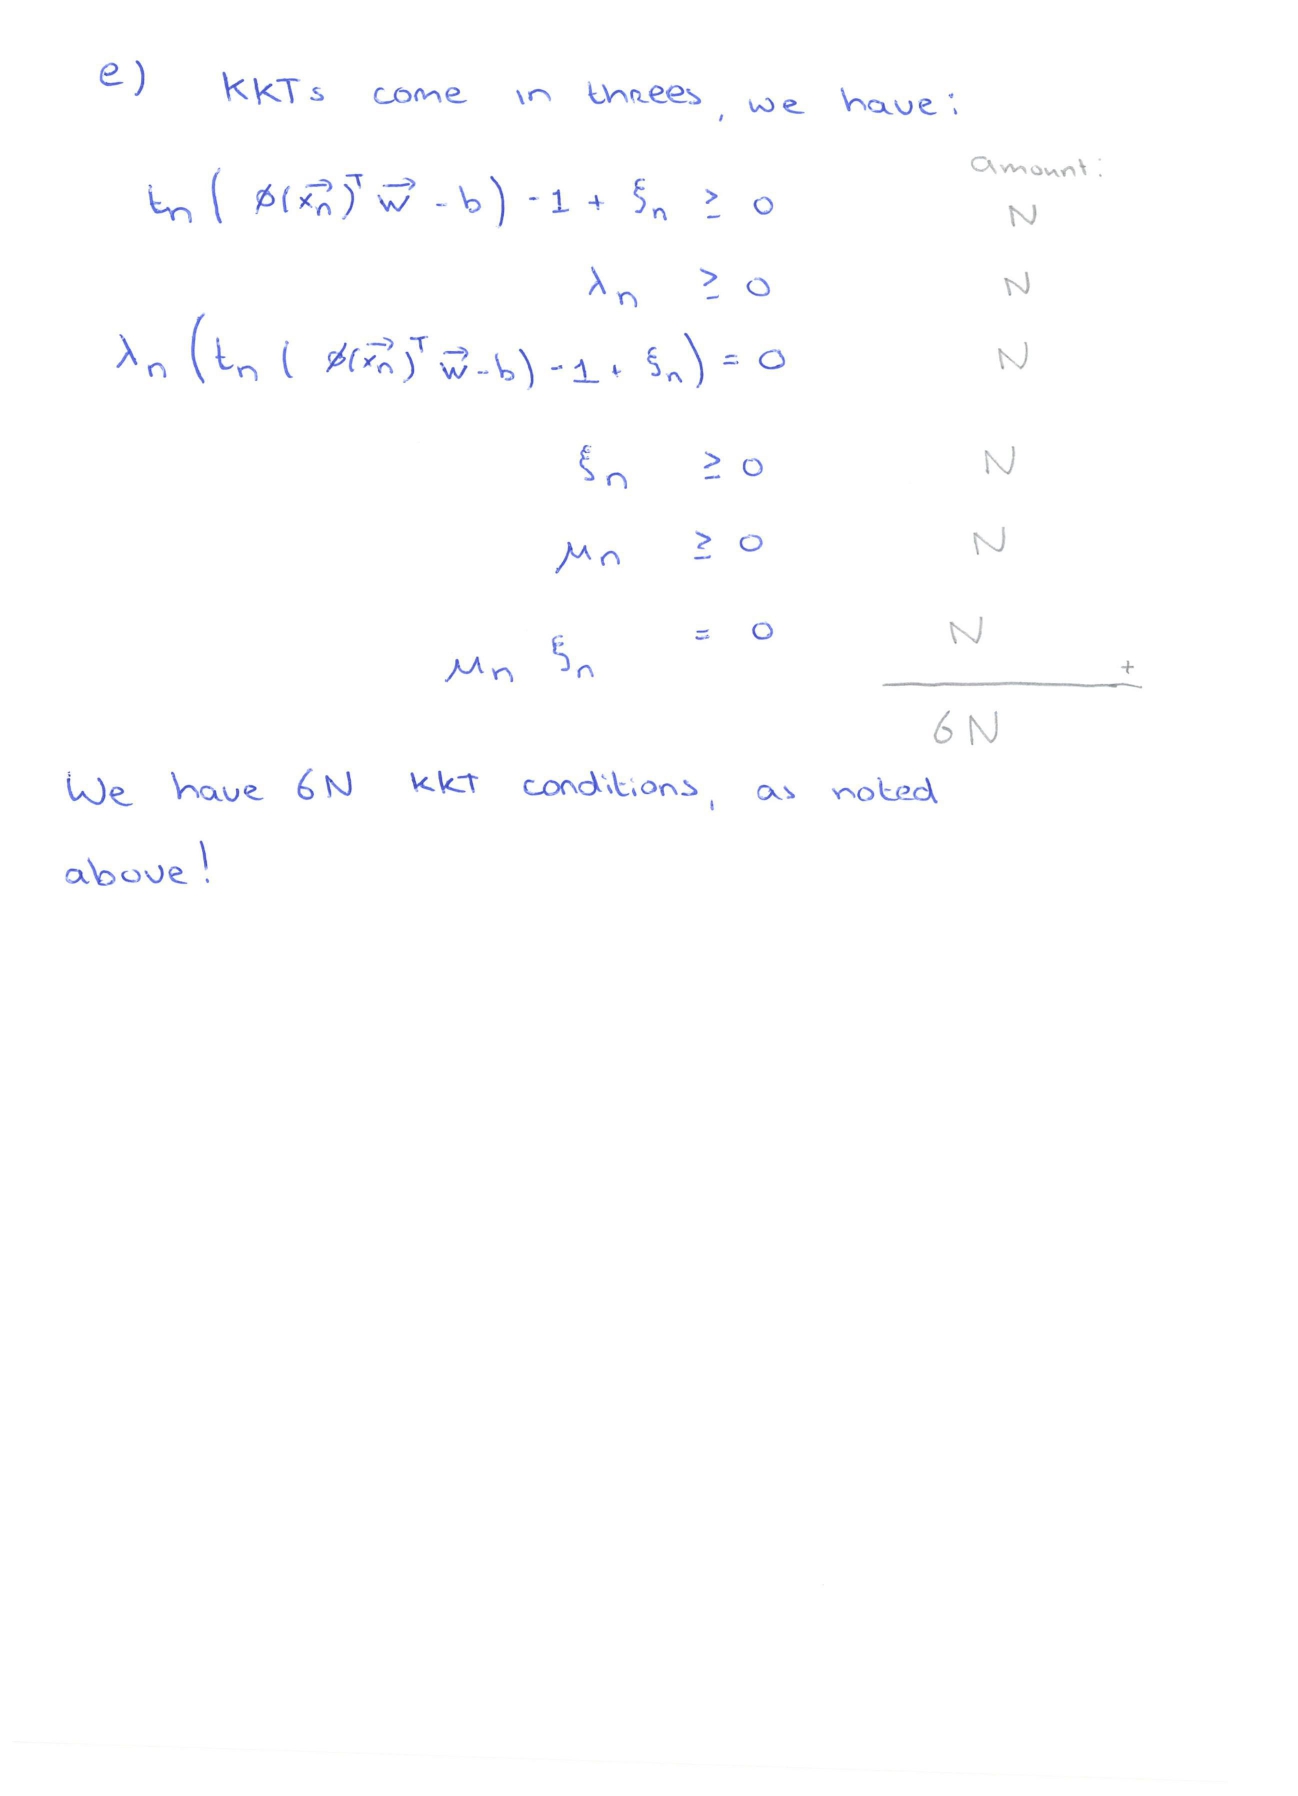 e) KKTs come in threes, we have:
amount:
tn ( ø(x⃗n)ᵀ w⃗ - b) - 1 + ξn ≥ 0 N
λn ≥ 0 N
λn (tn ( ø(x⃗n)ᵀ w⃗ - b) - 1 + ξn) = 0 N
ξn ≥ 0 N
μn ≥ 0 N
μn ξn = 0 N
+
6N
We have 6N KKT conditions, as noted
above!